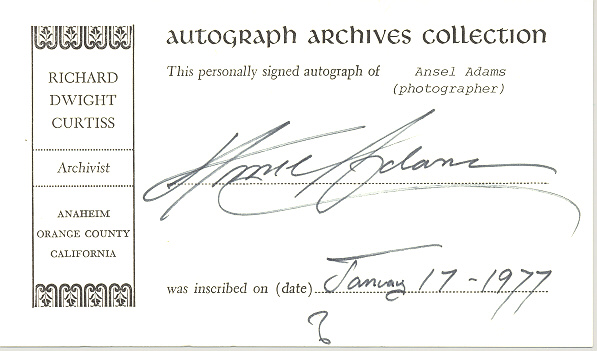 AUTOGRAPH ARCHIVES COLLECTION
RICHARD
DWIGHT
CURTISS
Archivist
ANAHEIM
ORANGE COUNTY
CALIFORNIA
This personally signed autograph of Ansel Adams
(photographer)
Ansel Adams
was inscribed on (date) January 17-1977
?